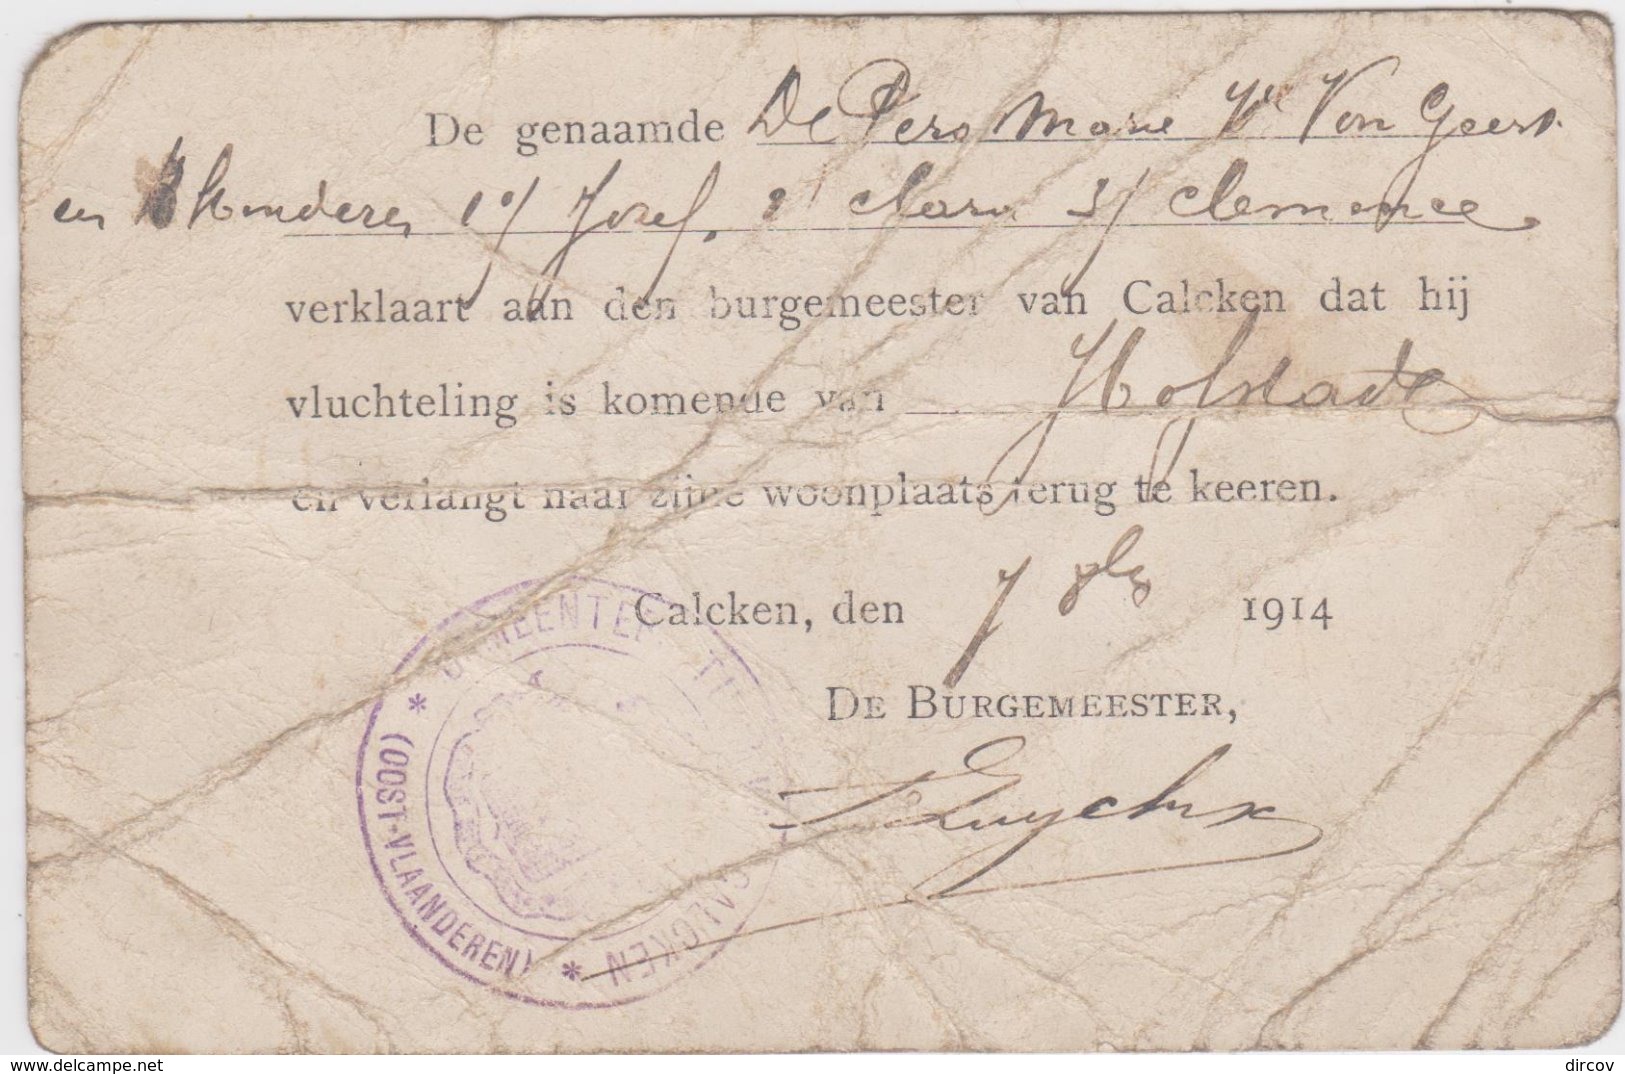 De genaamde De Pers Marie Ve Van Geert
en 3 kinderen 1°/ Jozef, 2/ Clara 3/ Clemence
verklaart aan den burgemeester van Calcken dat hij
vluchteling is komende van Hofstade
en verlangt naar zijne woonplaats terug te keeren.
Calcken, den 7 8bre 1914
DE BURGEMEESTER,
* GEMEENTE CALCKEN *
(OOST-VLAANDEREN)
delcampe.net
dircov